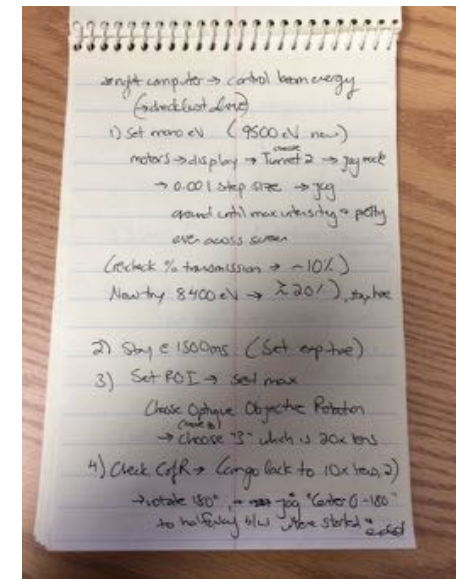 → right computer → control beam energy
(→ checklist above)
1) Set mono eV (9500 eV now)
choose
motors → display → Turret 2 → jog mode
→ 0.001 step size → jog
around until max intensity + pretty
even across screen
(recheck % transmission → ~10%)
Now try 8400 eV → ≥20%), stay here
2) Stay @ 1500ms (Set exp time)
3) Set ROI → set max
Choose Optique Objective Rotation
→ choose "3" which is 20x lens
4) Check CofR → (can go back to 10x lens, 2)
→ rotate 180°, → jog "Center 0-180"
to halfway b/w where started + ended